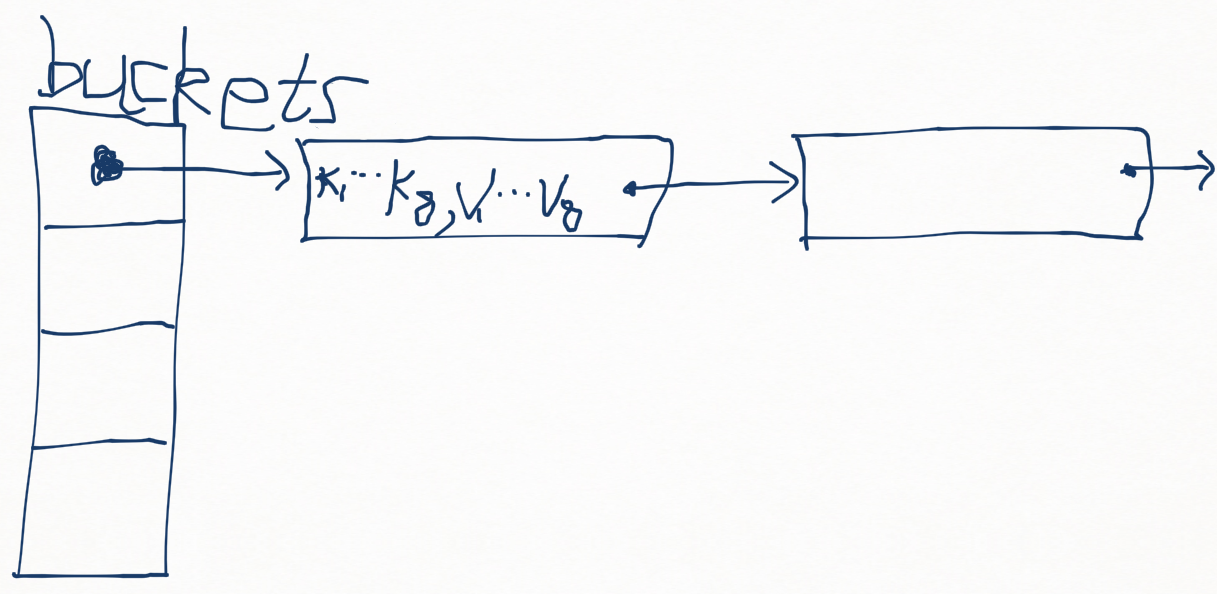 buckets
K₁...K₈,V₁...V₈